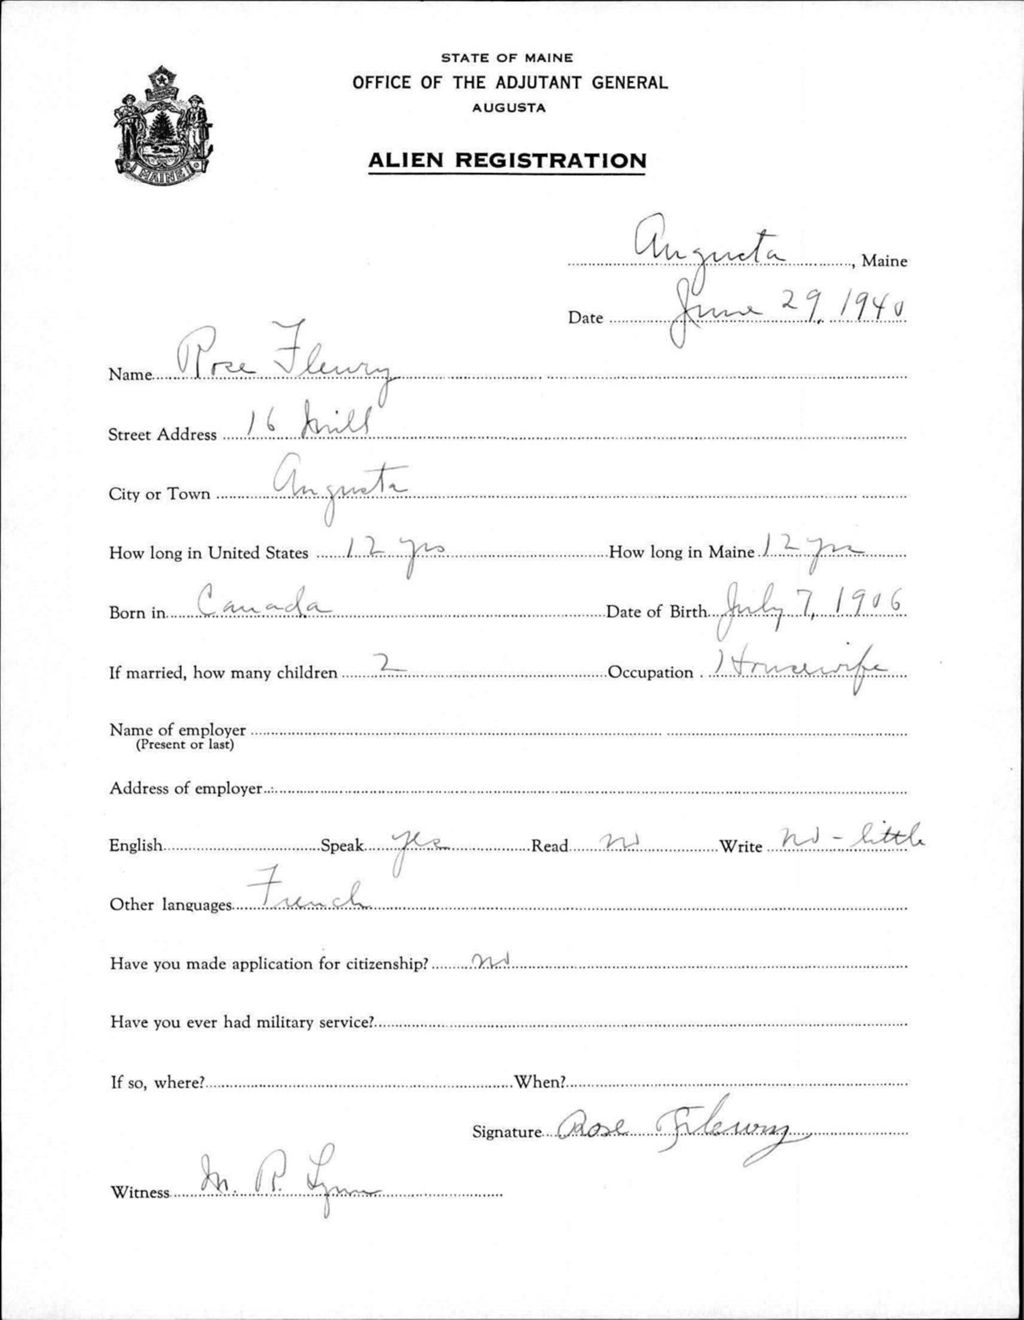 STATE OF MAINE
OFFICE OF THE ADJUTANT GENERAL
AUGUSTA
ALIEN REGISTRATION
MAINE
Augusta, Maine
Date June 29, 1940
Name Rose Fleury
Street Address 16 Mill
City or Town Augusta
How long in United States 12 yrs How long in Maine 12 yrs
Born in Canada Date of Birth July 7, 1906
If married, how many children 2 Occupation Housewife
Name of employer
(Present or last)
Address of employer
English Speak yes Read no Write no - little
Other languages French
Have you made application for citizenship? no
Have you ever had military service?
If so, where? When?
Signature Rose Fleury
Witness M. P. Lynn